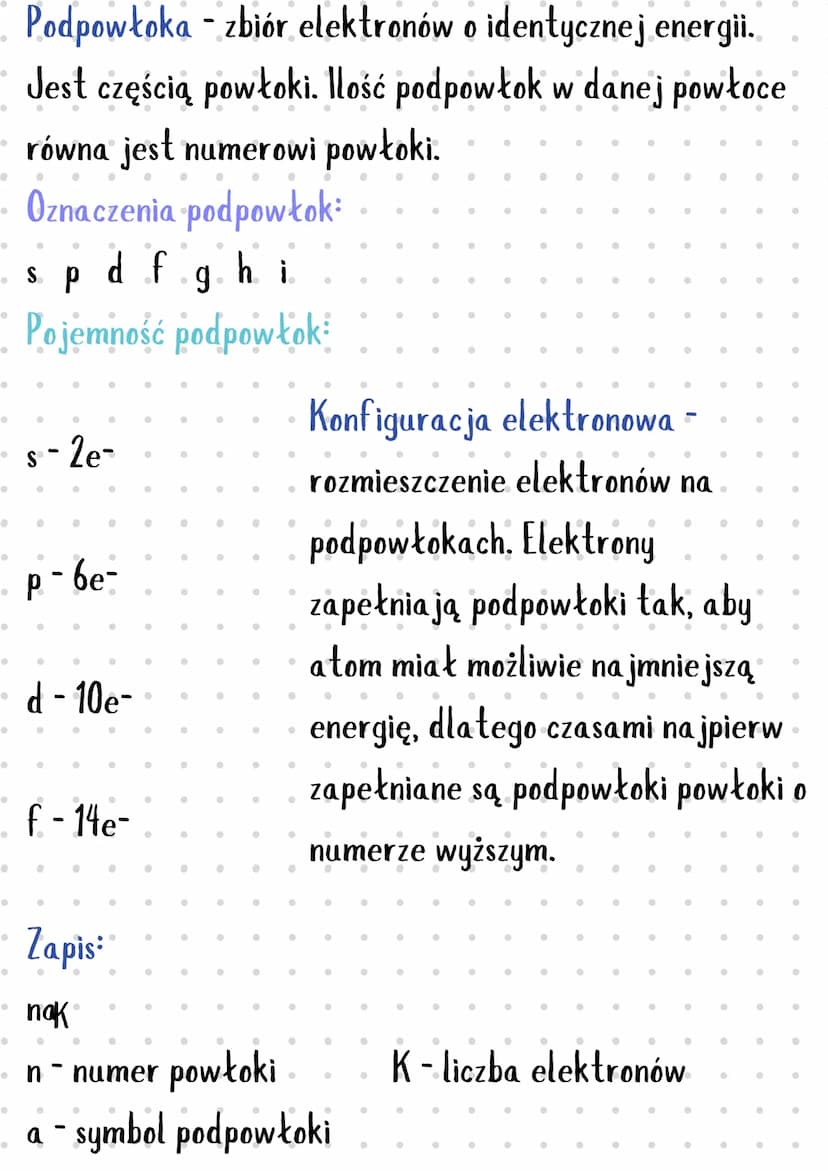 Podpowłoka - zbiór elektronów o identycznej energii.
Jest częścią powłoki. Ilość podpowłok w danej powłoce
równa jest numerowi powłoki.
Oznaczenia podpowłok:
s p d f g h i
Pojemność podpowłok:
s - 2e-
p - 6e-
d - 10e-
f - 14e-
Konfiguracja elektronowa -
rozmieszczenie elektronów na
podpowłokach. Elektrony
zapełniają podpowłoki tak, aby
atom miał możliwie najmniejszą
energię, dlatego czasami najpierw
zapełniane są podpowłoki powłoki o
numerze wyższym.
Zapis:
naK
n - numer powłoki
K - liczba elektronów
a - symbol podpowłoki